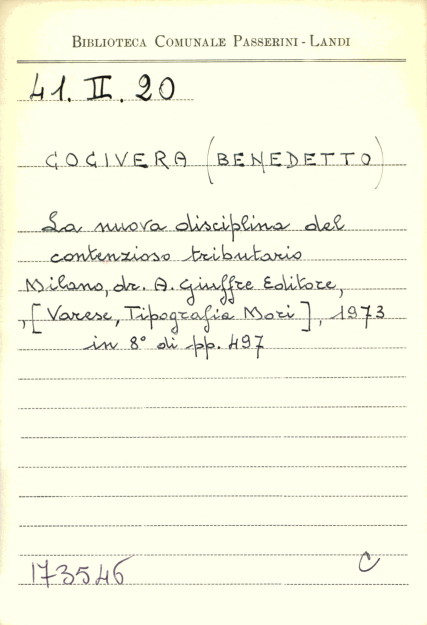 BIBLIOTECA COMUNALE PASSERINI - LANDI
41. II. 20
COCIVERA (BENEDETTO)
La nuova disciplina del
contenzioso tributario
Milano, dr. A. Giuffre Editore,
, [Varese, Tipografia Mori], 1973
in 8° di pp. 497
173546 C